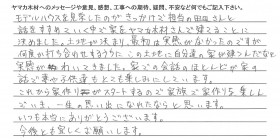 ヤマカ木材へのメッセージや意見、感想、工事への期待、疑問、不安など何でもご記入下さい。
モデルハウスを見学したのがきっかけで担当の田さんと
話をすすめていく中で家をヤマカ木材さんで建てることに
決めました。土地が決まり、最初は実感がなかったのですが
何度か打ち合わせをするうちに、この土地に自分達の家が建つんだなと
実感がわいてきました。家での会話のほとんどが家の
話で妻や子供達もとても楽しみにしています。
これから家づくりがスタートするので家族で楽しみながら
一生の思い出になれたらなと思います。
いつも本当にありがとうございます。
今後とも宜しくお願いします。